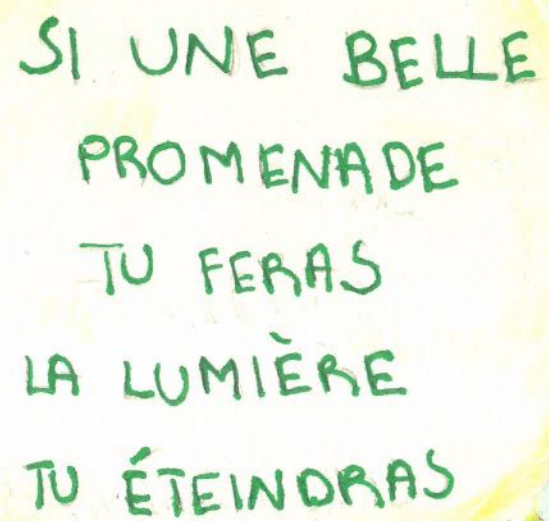 SI UNE BELLE
PROMENADE
TU FERAS
LA LUMIÈRE
TU ÉTEINDRAS